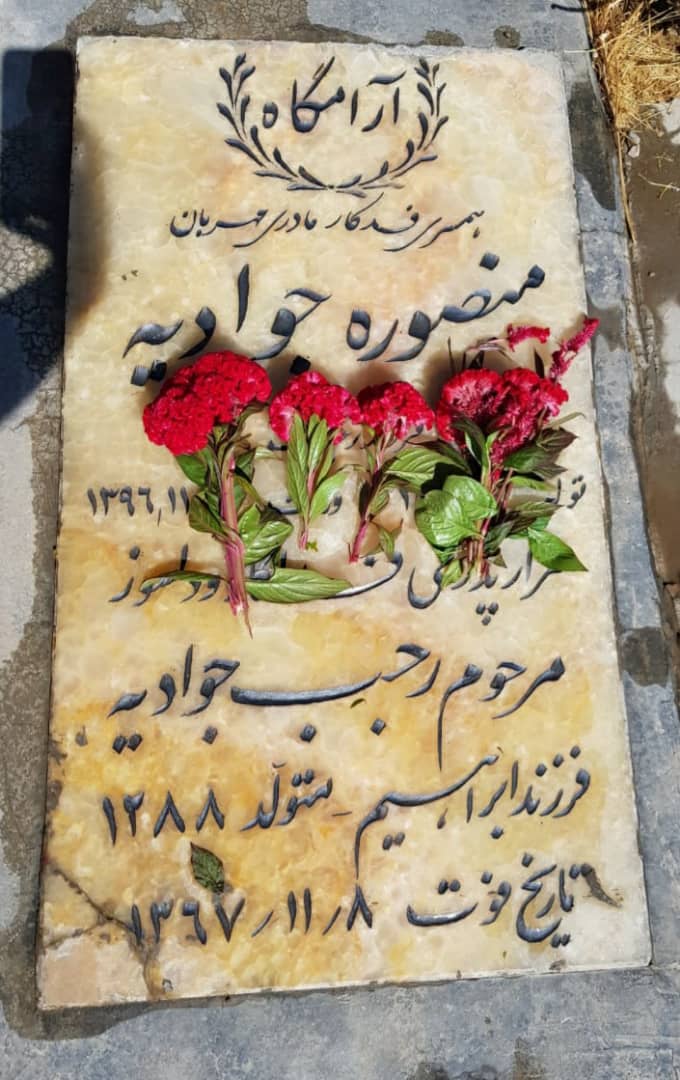 آرامگاه
همسری فدکار مادری مهربان
منصوره جوادیه
۱۳۹۶٫۱۱
مزار پدری دلسوز
مرحوم رجب جوادیه
فرزند ابراهیم - متولد ۱۲۸۸
تاریخ فوت ۱۳۶۷٫۱۱٫۸